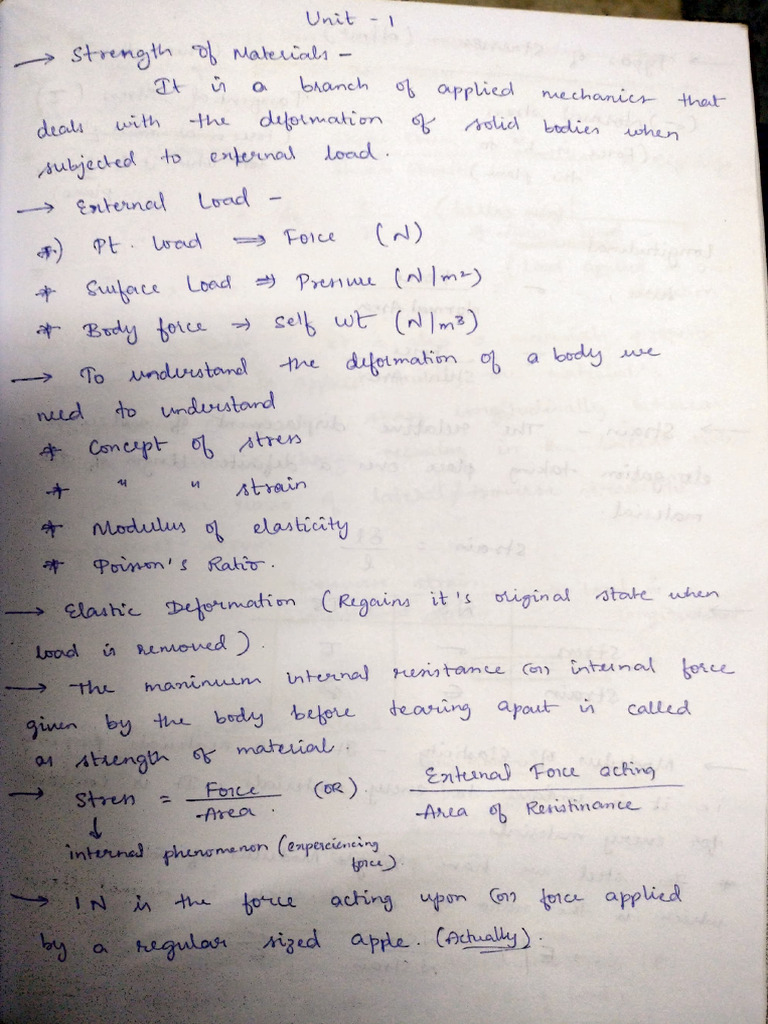 Unit - 1
→ Strength of Materials -
It is a branch of applied mechanics that
deals with the deformation of solid bodies when
subjected to external load.
→ External Load -
*) Pt. load ⇒ Force (N)
* Surface Load ⇒ Pressure (N/m²)
* Body force → Self wt (N/m³)
→ To understand the deformation of a body we
need to understand
* Concept of stress
* " " strain
* Modulus of elasticity
* Poisson's Ratio.
→ Elastic Deformation (Regains it's original state when
load is removed).
→ The maximum internal resistance (or) internal force
given by the body before tearing apart is called
as strength of material.
→ Stress = Force / Area. (OR) External Force acting / Area of Resistinance
↓
internal phenomenon (experciencing
force)
→ 1N is the force acting upon (or) force applied
by a regular sized apple. (Actually).